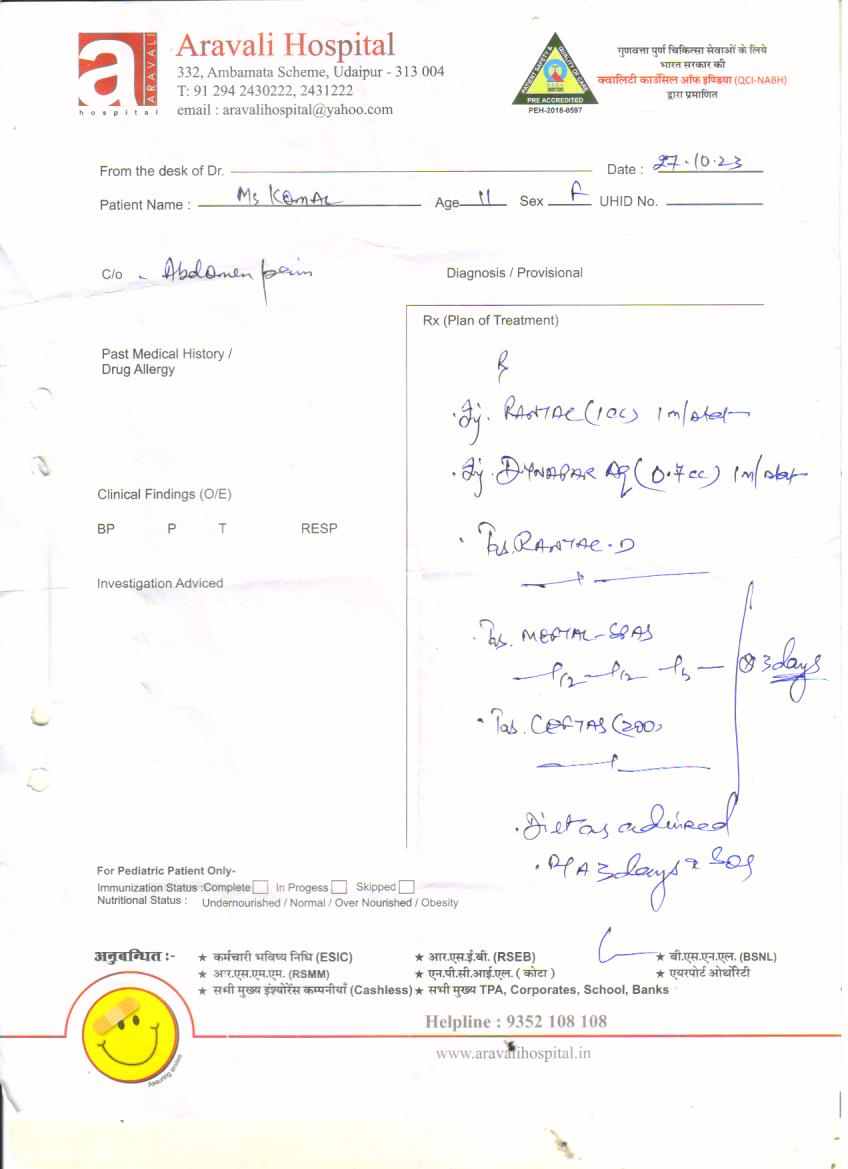 a ARAVALI
hospital
Aravali Hospital
332, Ambamata Scheme, Udaipur - 313 004
T: 91 294 2430222, 2431222
email : aravalihospital@yahoo.com
PATIENT SAFETY & QUALITY OF CARE
NABH
PRE ACCREDITED
PEH-2018-0597
गुणवत्ता पुर्ण चिकित्सा सेवाओं के लिये
भारत सरकार की
क्वालिटी काउंसिल ऑफ इण्डिया (QCI-NABH)
द्वारा प्रमाणित
From the desk of Dr. Date : 27.10.23
Patient Name : Ms KOMAL Age 11 Sex F UHID No.
C/o - Abdomen pain
Diagnosis / Provisional
Rx (Plan of Treatment)
Past Medical History /
Drug Allergy
Rx
Inj. RANTAC (1cc) 1m/stat
Inj. DYNAPAR AQ (0.7cc) 1m/stat
Clinical Findings (O/E)
BP P T RESP
Tab. RANTAC-D
Investigation Adviced
Tab. MEFTAL-SPAS
x 3 days
Tab. CEFTAS (200)
Diet as advised
3 days SOS
For Pediatric Patient Only-
Immunization Status :Complete In Progess Skipped
Nutritional Status : Undernourished / Normal / Over Nourished / Obesity
अनुबन्धित :- ★ कर्मचारी भविष्य निधि (ESIC) ★ आर.एस.ई.बी. (RSEB) ★ बी.एस.एन.एल. (BSNL)
★ आर.एस.एम.एम. (RSMM) ★ एन.पी.सी.आई.एल. ( कोटा ) ★ एयरपोर्ट ऑथोरिटी
★ सभी मुख्य इंश्योरेंस कम्पनीयाँ (Cashless) ★ सभी मुख्य TPA, Corporates, School, Banks
Assuring smiles
Helpline : 9352 108 108
www.aravalihospital.in